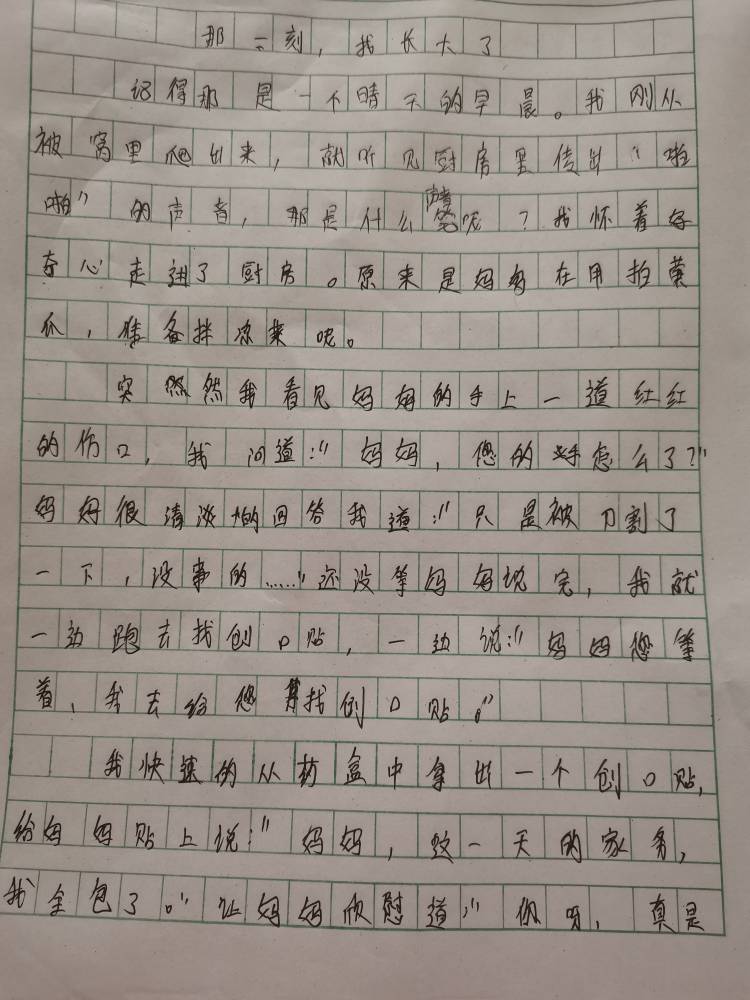 那一刻，我长大了
记得那是一个晴天的早晨。我刚从
被窝里爬出来，就听见厨房里传出“啪
啪”的声音，那是什么声音呢？我怀着好
奇心走进了厨房。原来是妈妈在用拍黄
瓜，准备拌凉菜呢。
突然然我看见妈妈的手上一道红红
的伤口，我问道：“妈妈，您的手怎么了？”
妈妈很清淡的回答我道：“只是被刀割了
一下，没事的……”还没等妈妈说完，我就
一边跑去找创口贴，一边说：“妈妈您等
着，我去给您找创口贴。”
我快速的从药盒中拿出一个创口贴，
给妈妈贴上说：“妈妈，这一天的家务，
我全包了。”让妈妈欣慰道：“你呀，真是